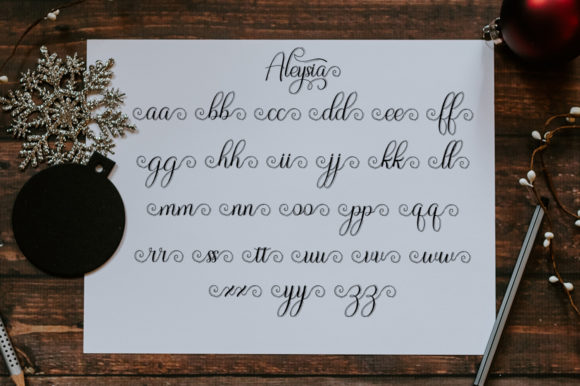 Aleysia
aa bb cc dd ee ff
gg hh ii jj kk ll
mm nn oo pp qq
rr ss tt uu vv ww
xx yy zz